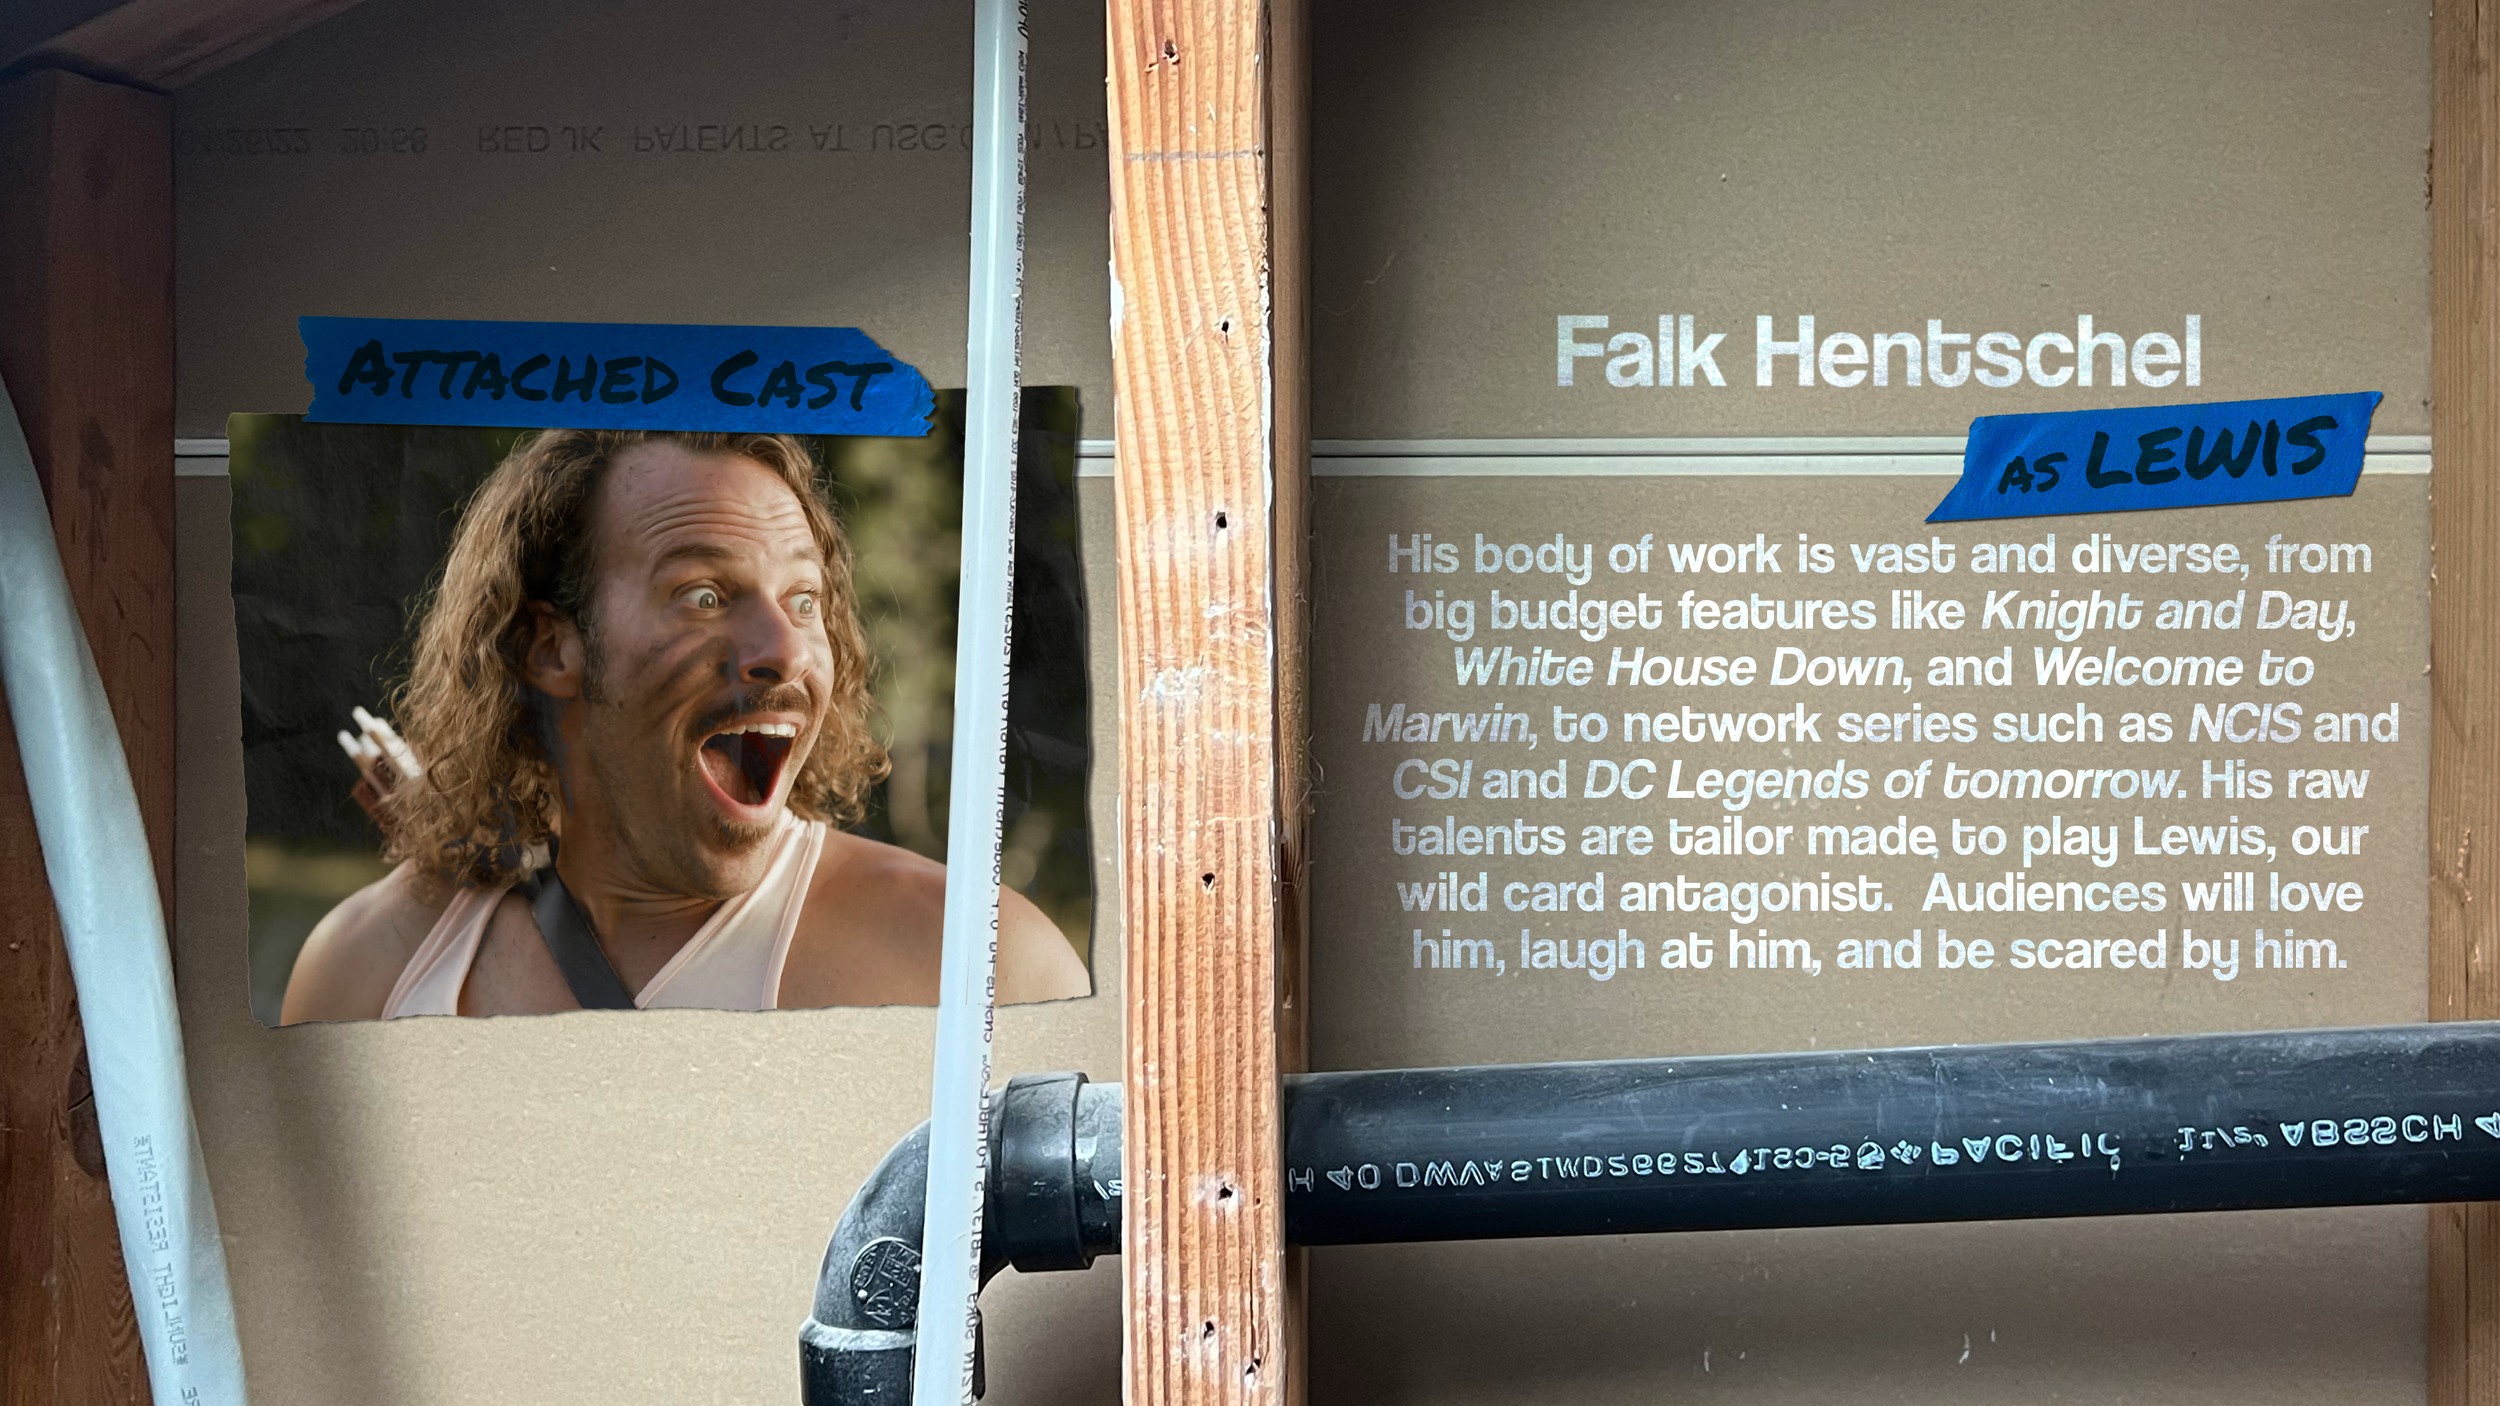 RED JK PATENTS AT USG.
ATTACHED CAST
Falk Hentschel
AS LEWIS
His body of work is vast and diverse, from
big budget features like Knight and Day,
White House Down, and Welcome to
Marwin, to network series such as NCIS and
CSI and DC Legends of tomorrow. His raw
talents are tailor made to play Lewis, our
wild card antagonist. Audiences will love
him, laugh at him, and be scared by him.
PACIFIC